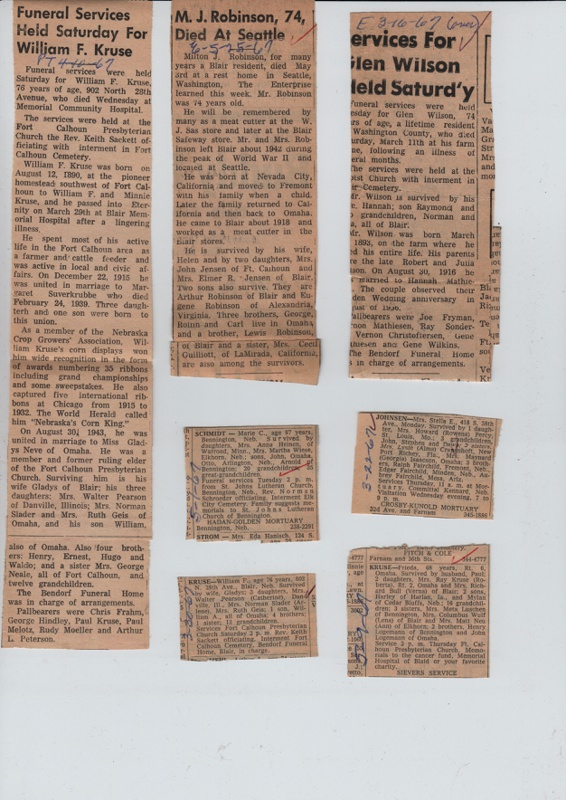 Funeral Services
Held Saturday For
William F. Kruse
Funeral services were held
Saturday for William F. Kruse,
76 years of age, 902 North 28th
Avenue, who died Wednesday at
Memorial Community Hospital.
The services were held at the
Fort Calhoun Presbyterian
Church the Rev. Keith Sackett of-
ficiating with interment in Fort
Calhoun Cemetery.
William F. Kruse was born on
August 12, 1890, at the pioneer
homestead southwest of Fort Cal-
houn to William F. and Minnie
Kruse, and he passed into Eter-
nity on March 29th at Blair Mem-
orial Hospital after a lingering
illness.
He spent most of his active
life in the Fort Calhoun area as
a farmer and cattle feeder and
was active in local and civic af-
fairs. On December 22, 1915 he
was united in marriage to Mar-
garet Suverkrubbe who died
February 24, 1939. Three daugh-
terh and one son were born to
this union.
As a member of the Nebraska
Crop Growers' Association, Wil-
liam Kruse's corn displays won
him wide recognition in the form
of awards numbering 35 ribbons
including grand championships
and some sweepstakes. He also
captured five international rib-
bons at Chicago from 1915 to
1932. The World Herald called
him "Nebraska's Corn King."
On August 30, 1943, he was
united in marriage to Miss Glad-
ys Neve of Omaha. He was a
member and former ruling elder
of the Fort Calhoun Presbyterian
Church. Surviving him is his
wife Gladys of Blair; his three
daughters: Mrs. Walter Pearson
of Danville, Illinois; Mrs. Norman
Slader and Mrs. Ruth Geis of
Omaha, and his son William,
also of Omaha. Also four broth-
ers: Henry, Ernest, Hugo and
Waldo; and a sister Mrs. George
Neale, all of Fort Calhoun, and
twelve grandchildren.
The Bendorf Funeral Home
was in charge of arrangements.
Pallbearers were Chris Frahm,
George Hindley, Paul Kruse, Paul
Melotz, Rudy Moeller and Arthur
L. Peterson.
M. J. Robinson, 74,
Died At Seattle
E-5-25-67
Milton J. Robinson, for many
years a Blair resident, died May
3rd at a rest home in Seattle,
Washington, The Enterprise
learned this week. Mr. Robinson
was 74 years old.
He will be remembered by
many as a meat cutter at the W.
J. Sas store and later at the Blair
Safeway store. Mr. and Mrs. Rob-
inson left Blair about 1942 during
the peak of World War II and
located at Seattle.
He was born at Nevada City,
California and moved to Fremont
with his family when a child.
Later the family returned to Cal-
ifornia and then back to Omaha.
He came to Blair about 1918 and
worked as a meat cutter in the
Blair stores.
He is survived by his wife,
Helen and by two daughters, Mrs.
John Jensen of Ft. Calhoun and
Mrs. Elmer R. Jensen of Blair.
Two sons also survive. They are
Arthur Robinson of Blair and Eu-
gene Robinson of Alexandria,
Virginia. Three brothers, George,
Hoinn and Carl live in Omaha,
and a brother, Lewis Robinson,
of Blair and a sister, Mrs. Cecil
Guilliott, of LaMirada, California,
are also among the survivors.
E 3-16-67
ervices For
Glen Wilson
Held Saturd'y
Funeral services were held
Glen Wilson, 74
rs of age, a lifetime resident
Washington County, who died
turday, March 11th at his farm
me, following an illness of
eral months.
The services were held at the
Church with interment in
Cemetery.
Mr. Wilson is survived by his
e, Hannah; son Raymond and
grandchildren, Norman and
all of Blair.
Mr. Wilson was born March
1893, on the farm where he
ed his entire life. His parents
re the late Robert and Julia
son. On August 30, 1916 he
The couple observed their
den Wedding anniversary in
of 1966.
Pallbearers were Joe Fryman,
non Mathiesen, Ray Sonder-
Vernon Christoffersen, Gene
hiesen and Gene Wilkins.
The Bendorf Funeral Home
in charge of arrangements.
SCHMIDT—Marie C., age 87 years,
Bennington, Neb. Survived by
daughters, Mrs. Anna Heinez, of
Warroad, Minn., Mrs. Martha Wiese,
Elkhorn, Neb.; sons, John, Omaha,
Otto, Arlington, Neb., Arnold
Bennington; 26 grandchildren, 35
great-grandchildren.
Funeral services Tuesday 2 p.m.
from St. Johns Lutheran Church,
Bennington, Neb. Rev. Norman
Schroeder officiating. Interment Elk
City Cemetery. Family suggests me-
morials to St. Johns Lutheran
Church of Bennington.
HADAN-GOLDEN MORTUARY
Bennington, Neb. 238-2291
STROM — Mrs. Eda Hanisch, 124 S.
JOHNSEN—Mrs. Stella E., 418 S. 38th
Ave., Monday. Survived by 1 daugh-
ter, Mrs. Howard (Rowena) Percy,
St. Louis, Mo.; 3 grandchildren;
Visitation Wednesday evening, 7 to
9 p.m.
CROSBY-KUNOLD MORTUARY
52d Ave. and Farnam
3-22-67
KRUSE—William F., age 76 years, 902
N. 28th, Blair, Neb. Survived by
wife, Gladys; 3 daughters, Mrs.
Walter Pearson (Catherine), Dan-
ville, Ill., Mrs. Norman Slader
Mrs. Ruth Geis; 1 son, Wil-
liam A., all of Omaha; 4 brothers;
1 sister; 11 grandchildren.
Services Fort Calhoun Presbyterian
Church Saturday 2 p.m. Rev. Keith
Sackett officiating. Interment Fort
Calhoun Cemetery. Bendorf Funeral
Home, Blair, in charge.
FITCH & COLE
Farnam and 30th Sts.
KRUSE—Frieda, 68 years, Rt. 5,
Omaha. Survived by husband, Paul;
2 daughters, Mrs. Ray Kruse (Ro-
berta), Rt. 2, Omaha and Mrs. Rich-
ard Bull (Verna) of Blair; 2 sons,
Harley of Harlan, Ia., and Mylan
of Cedar Bluffs, Neb.; 16 grandchil-
dren; 3 sisters, Mrs. Meta Luetkens
of Bennington, Mrs. Columbus Wulf
(Lena) of Blair and Mrs. Matt Neu
(Ann) of Elkhorn; 2 brothers, Henry
Lopmann of Bennington and John
Logemann of Omaha.
Service 2 p.m. Thursday Ft. Cal-
houn Presbyterian Church. Memo-
rials to the cancer fund, Memorial
Hospital of Blair or your favorite
charity.
SIEVERS SERVICE